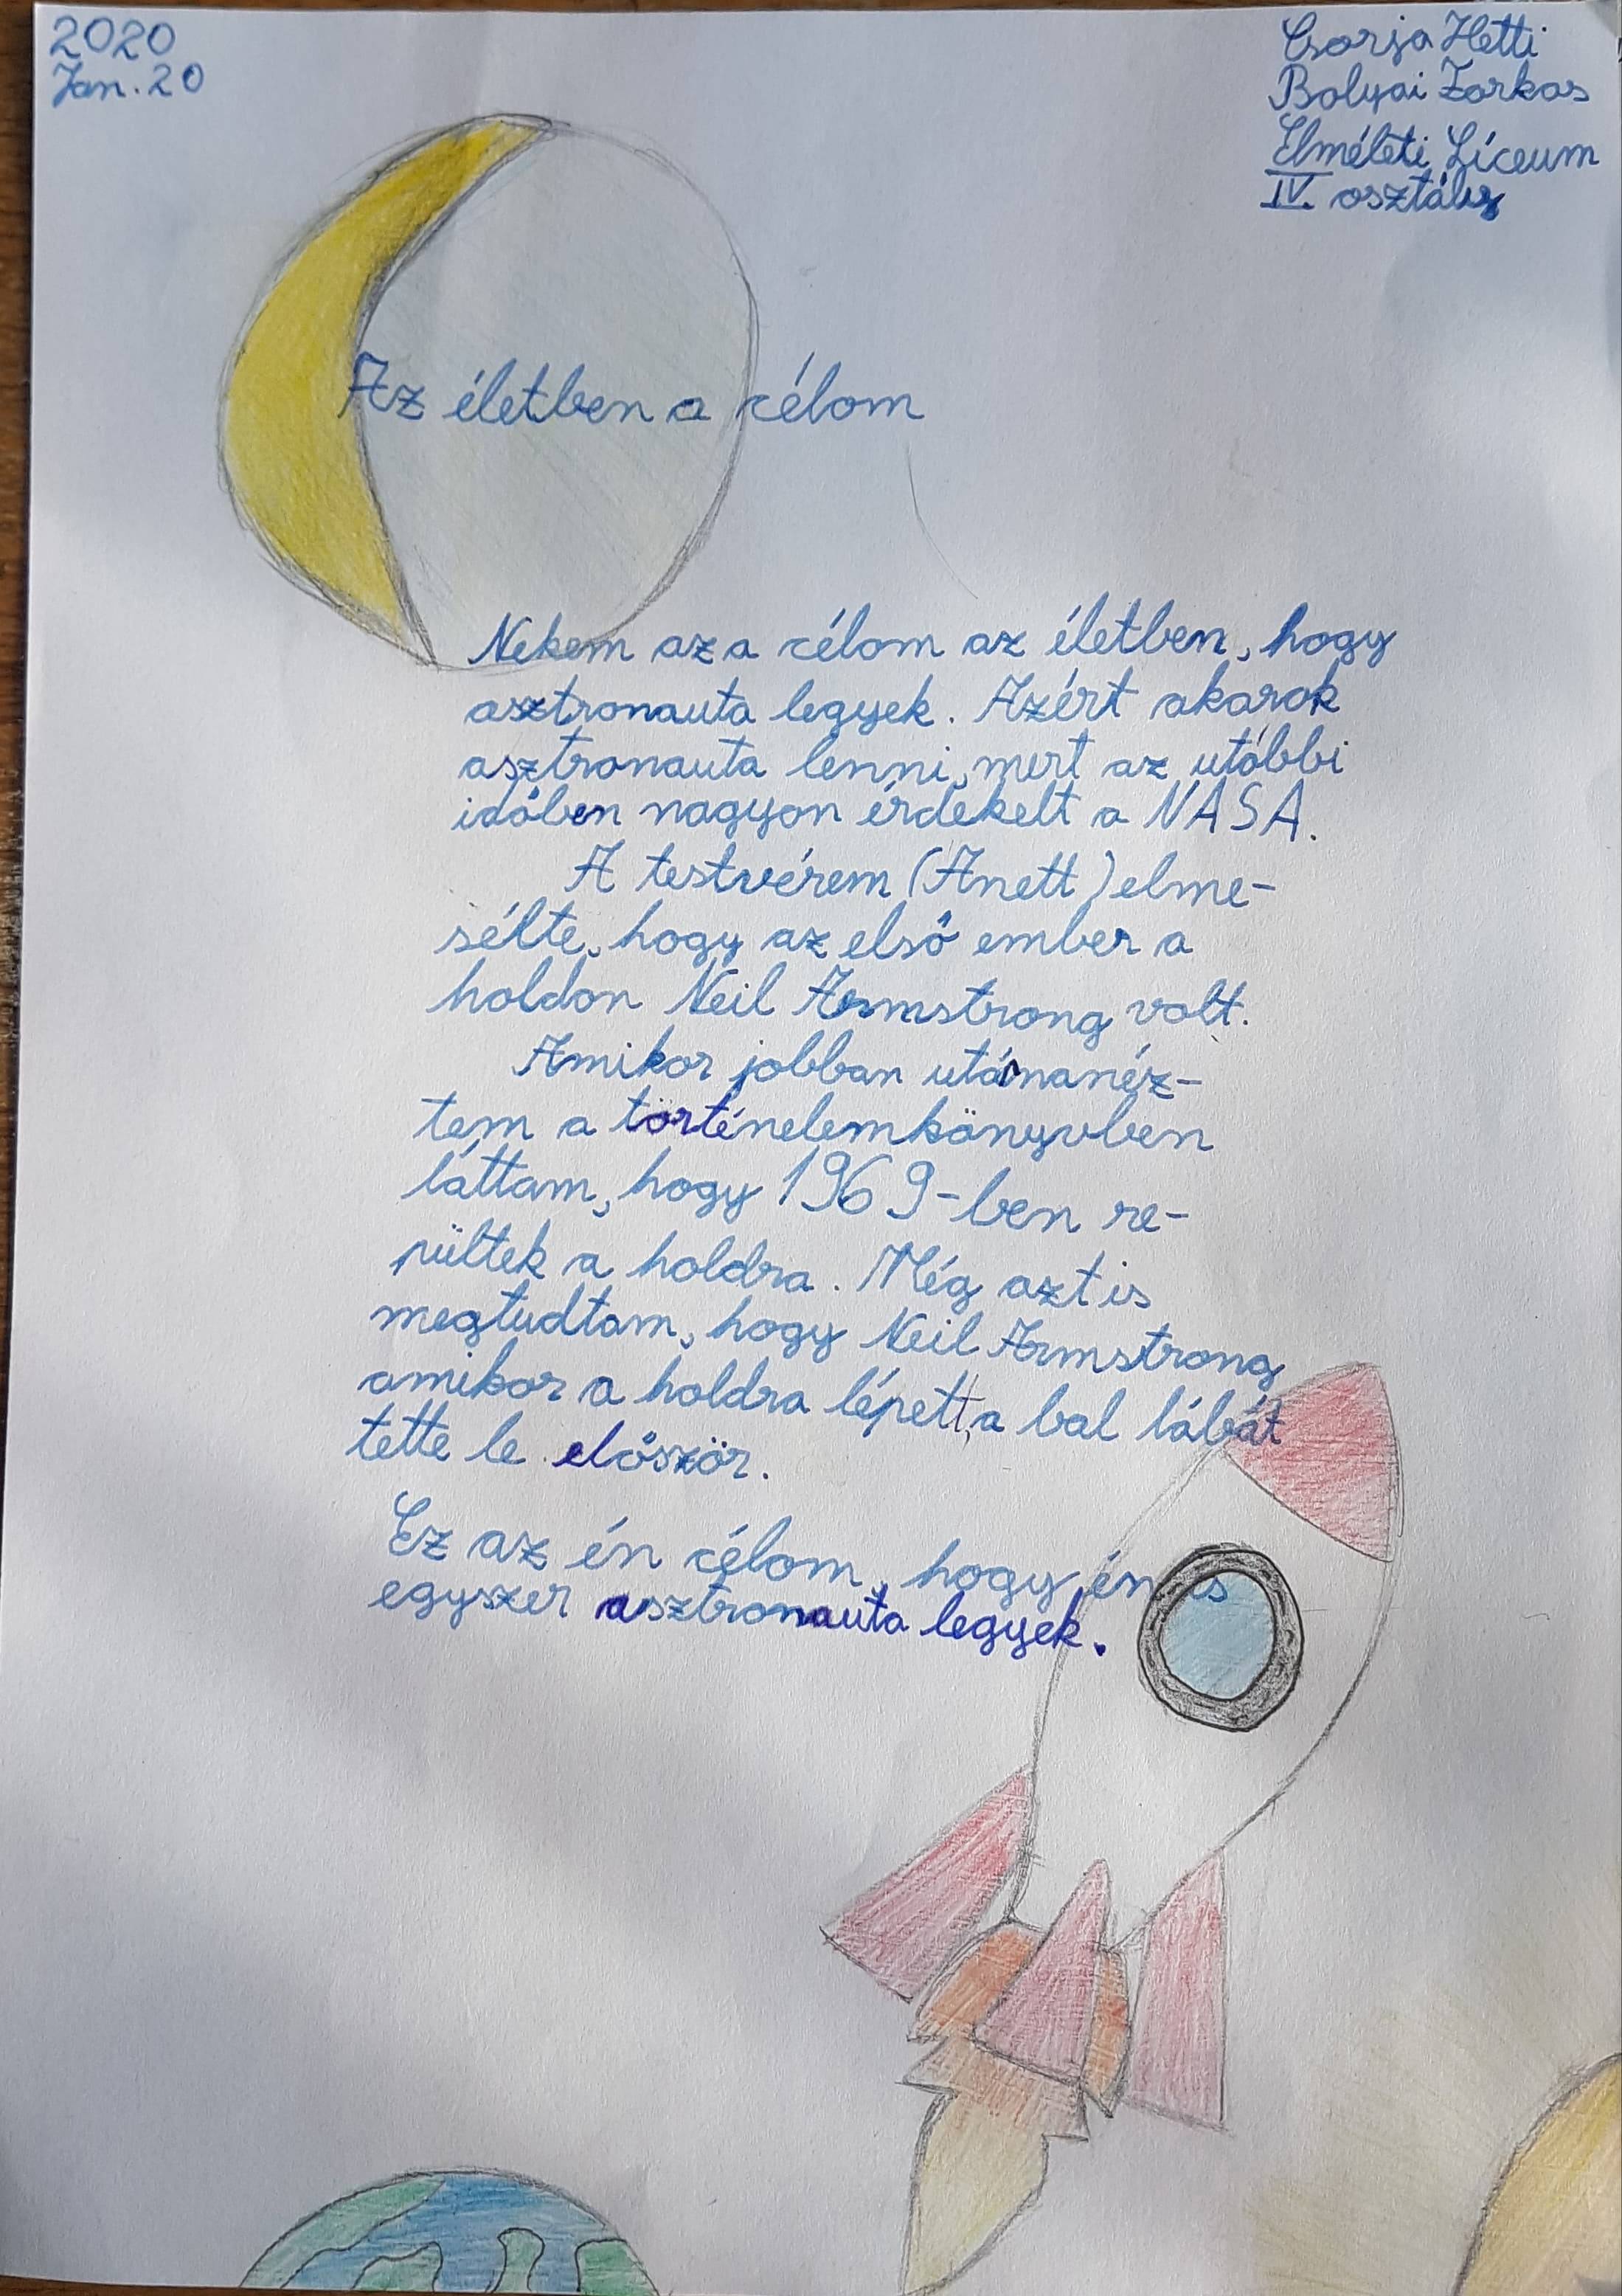 2020
Jan. 20
Csorja Hetti
Bolyai Farkas
Elméleti Líceum
IV. osztály
Az életben a célom
Nekem az a célom az életben, hogy
asztronauta legyek. Azért akarok
asztronauta lenni, mert az utóbbi
időben nagyon érdekelt a NASA.
A testvérem (Anett) elme-
sélte, hogy az első ember a
holdon Neil Armstrong volt.
Amikor jobban utánanéz-
tem a történelemkönyvben
láttam, hogy 1969-ben re-
pültek a holdra. Még azt is
megtudtam, hogy Neil Armstrong
amikor a holdra lépett, a bal lábát
tette le először.
Ez az én célom, hogy én is
egyszer asztronauta legyek.